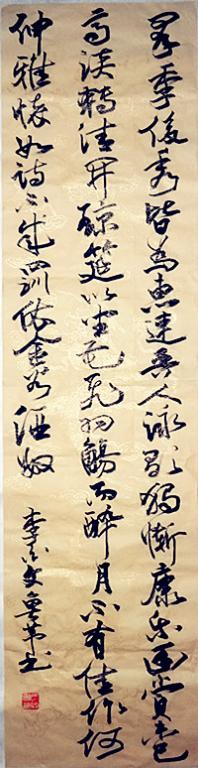 羣季俊秀皆為惠連吾人詠歌獨慚康樂幽賞未已
高談轉清開琼筵以坐花飛羽觴而醉月不有佳作何
伸雅懷如詩不成罰依金谷酒數
李白文書